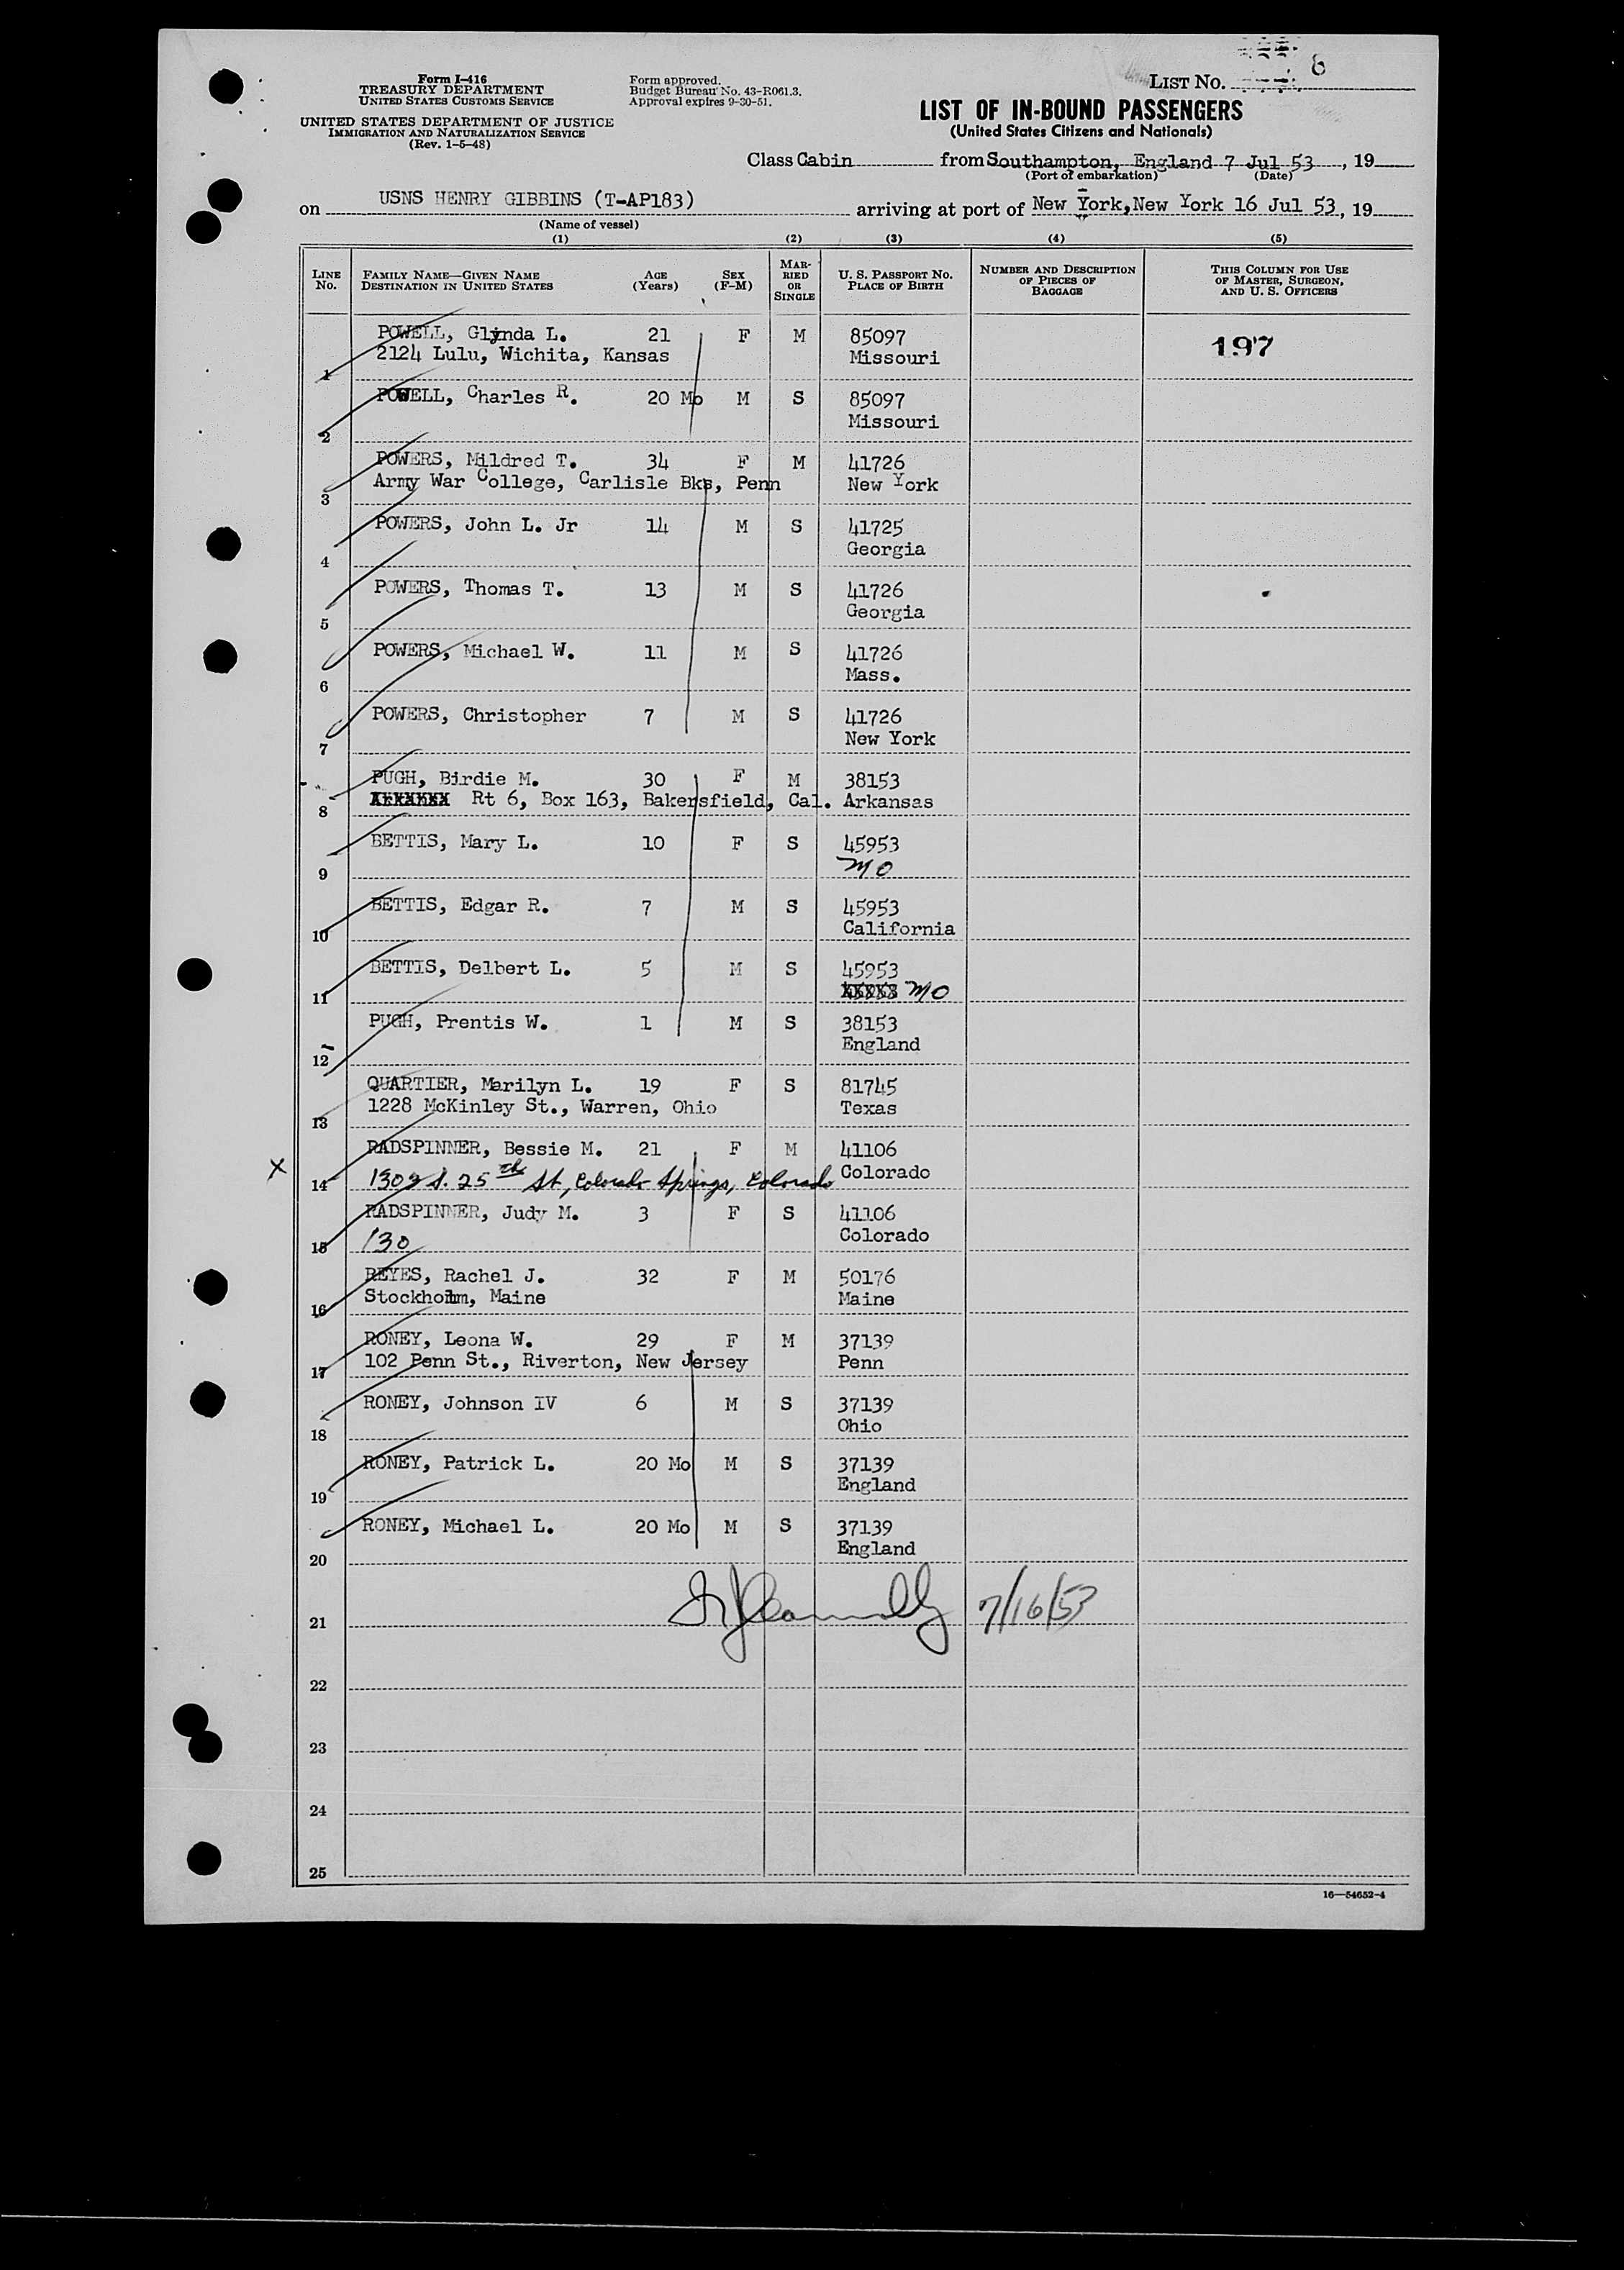 Form I-416
TREASURY DEPARTMENT
UNITED STATES CUSTOMS SERVICE
UNITED STATES DEPARTMENT OF JUSTICE
IMMIGRATION AND NATURALIZATION SERVICE
(Rev. 1-5-48)
Form approved.
Budget Bureau No. 43-R061.3.
Approval expires 9-30-51.
LIST NO. 6
LIST OF IN-BOUND PASSENGERS
(United States Citizens and Nationals)
Class Cabin from Southampton, England 7 Jul 53, 19
(Port of embarkation) (Date)
on USNS HENRY GIBBINS (T-AP183) arriving at port of New York, New York 16 Jul 53, 19
(Name of vessel)
(1) (2) (3) (4) (5)
LINE NO. FAMILY NAME—GIVEN NAME DESTINATION IN UNITED STATES AGE (Years) SEX (F-M) MARRIED OR SINGLE U. S. PASSPORT NO. PLACE OF BIRTH NUMBER AND DESCRIPTION OF PIECES OF BAGGAGE THIS COLUMN FOR USE OF MASTER, SURGEON, AND U. S. OFFICERS
POWELL, Glynda L. 21 F M 85097 197
1 2124 Lulu, Wichita, Kansas Missouri
POWELL, Charles R. 20 Mo M S 85097
2 Missouri
POWERS, Mildred T. 34 F M 41726
3 Army War College, Carlisle Bks, Penn New York
POWERS, John L. Jr 14 M S 41725
4 Georgia
POWERS, Thomas T. 13 M S 41726
5 Georgia
POWERS, Michael W. 11 M S 41726
6 Mass.
POWERS, Christopher 7 M S 41726
7 New York
PUGH, Birdie M. 30 F M 38153
8 Rt 6, Box 163, Bakersfield, Cal. Arkansas
BETTIS, Mary L. 10 F S 45953
9 MO
BETTIS, Edgar R. 7 M S 45953
10 California
BETTIS, Delbert L. 5 M S 45953
11 MO
PUGH, Prentis W. 1 M S 38153
12 England
QUARTIER, Marilyn L. 19 F S 81745
13 1228 McKinley St., Warren, Ohio Texas
RADSPINNER, Bessie M. 21 F M 41106
X 14 1302 S. 25th St, Colorado Springs, Colorado Colorado
RADSPINNER, Judy M. 3 F S 41106
15 130 Colorado
REYES, Rachel J. 32 F M 50176
16 Stockholm, Maine Maine
RONEY, Leona W. 29 F M 37139
17 102 Penn St., Riverton, New Jersey Penn
RONEY, Johnson IV 6 M S 37139
18 Ohio
RONEY, Patrick L. 20 Mo M S 37139
19 England
RONEY, Michael L. 20 Mo M S 37139
20 England
21 7/16/53
22
23
24
25
16—54652-4